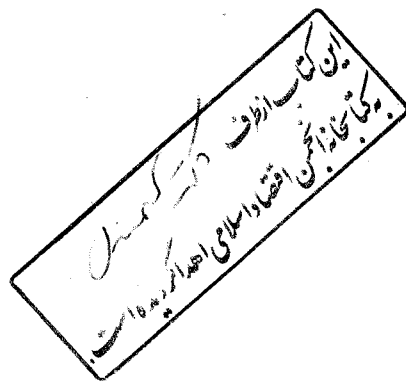 این کتاب از طرف دکتر
به کتابخانه انجمن اقتصاد اسلامی اهدا گردیده است.